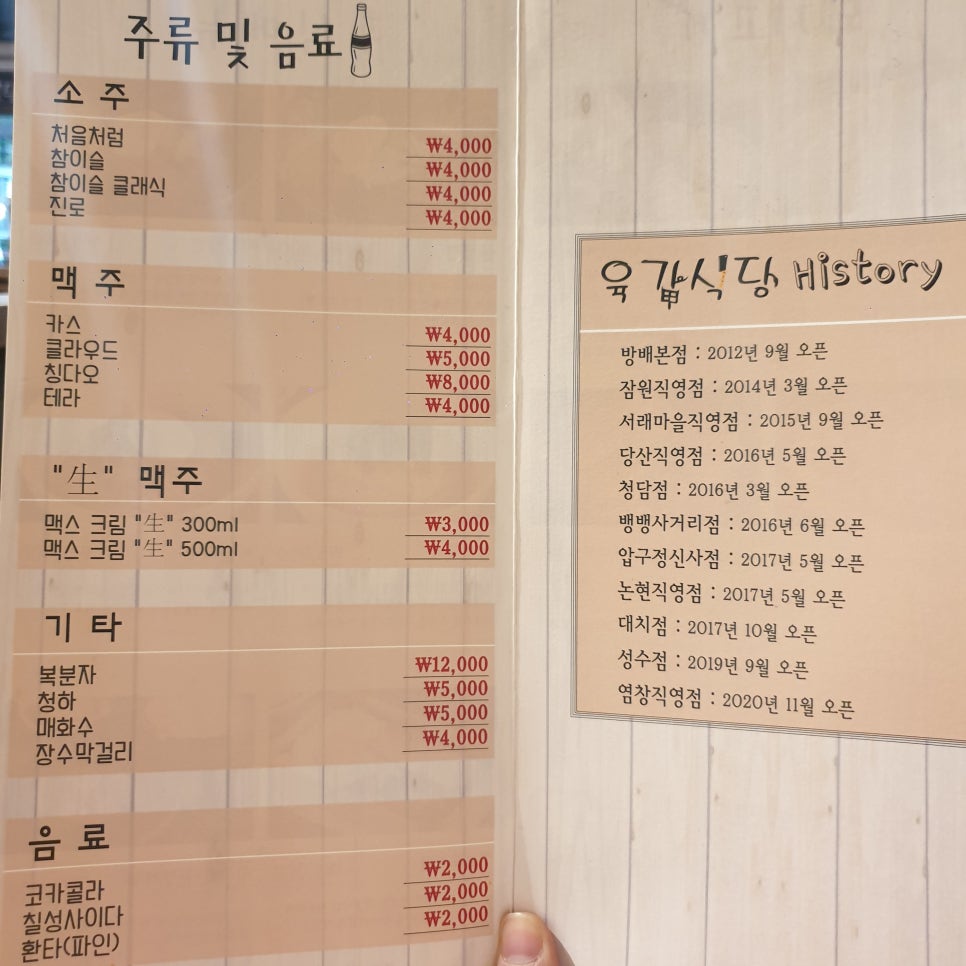 주류 및 음료
소 주
처음처럼 ₩4,000
참이슬 ₩4,000
참이슬 클래식 ₩4,000
진로 ₩4,000
맥 주
카스 ₩4,000
클라우드 ₩5,000
칭다오 ₩8,000
테라 ₩4,000
"生" 맥주
맥스 크림 "生" 300ml ₩3,000
맥스 크림 "生" 500ml ₩4,000
기 타
복분자 ₩12,000
청하 ₩5,000
매화수 ₩5,000
장수막걸리 ₩4,000
음 료
코카콜라 ₩2,000
칠성사이다 ₩2,000
환타(파인) ₩2,000
육갑식당 History
방배본점 : 2012년 9월 오픈
잠원직영점 : 2014년 3월 오픈
서래마을직영점 : 2015년 9월 오픈
당산직영점 : 2016년 5월 오픈
청담점 : 2016년 3월 오픈
뱅뱅사거리점 : 2016년 6월 오픈
압구정신사점 : 2017년 5월 오픈
논현직영점 : 2017년 5월 오픈
대치점 : 2017년 10월 오픈
성수점 : 2019년 9월 오픈
염창직영점 : 2020년 11월 오픈